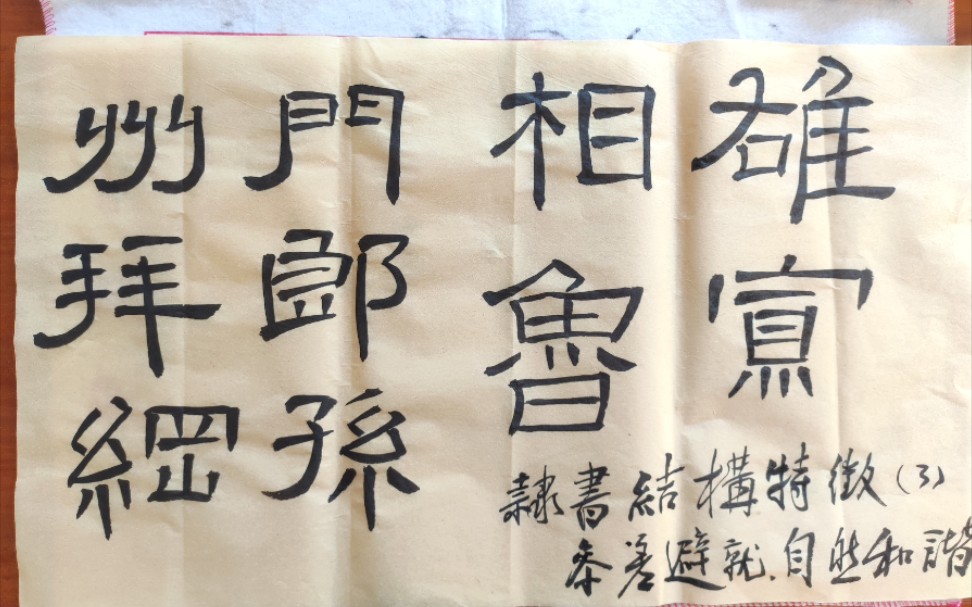 雄寘
相魯
門郎孫
州拜綱
隸書結構特徵(3)
參差避就、自然和諧